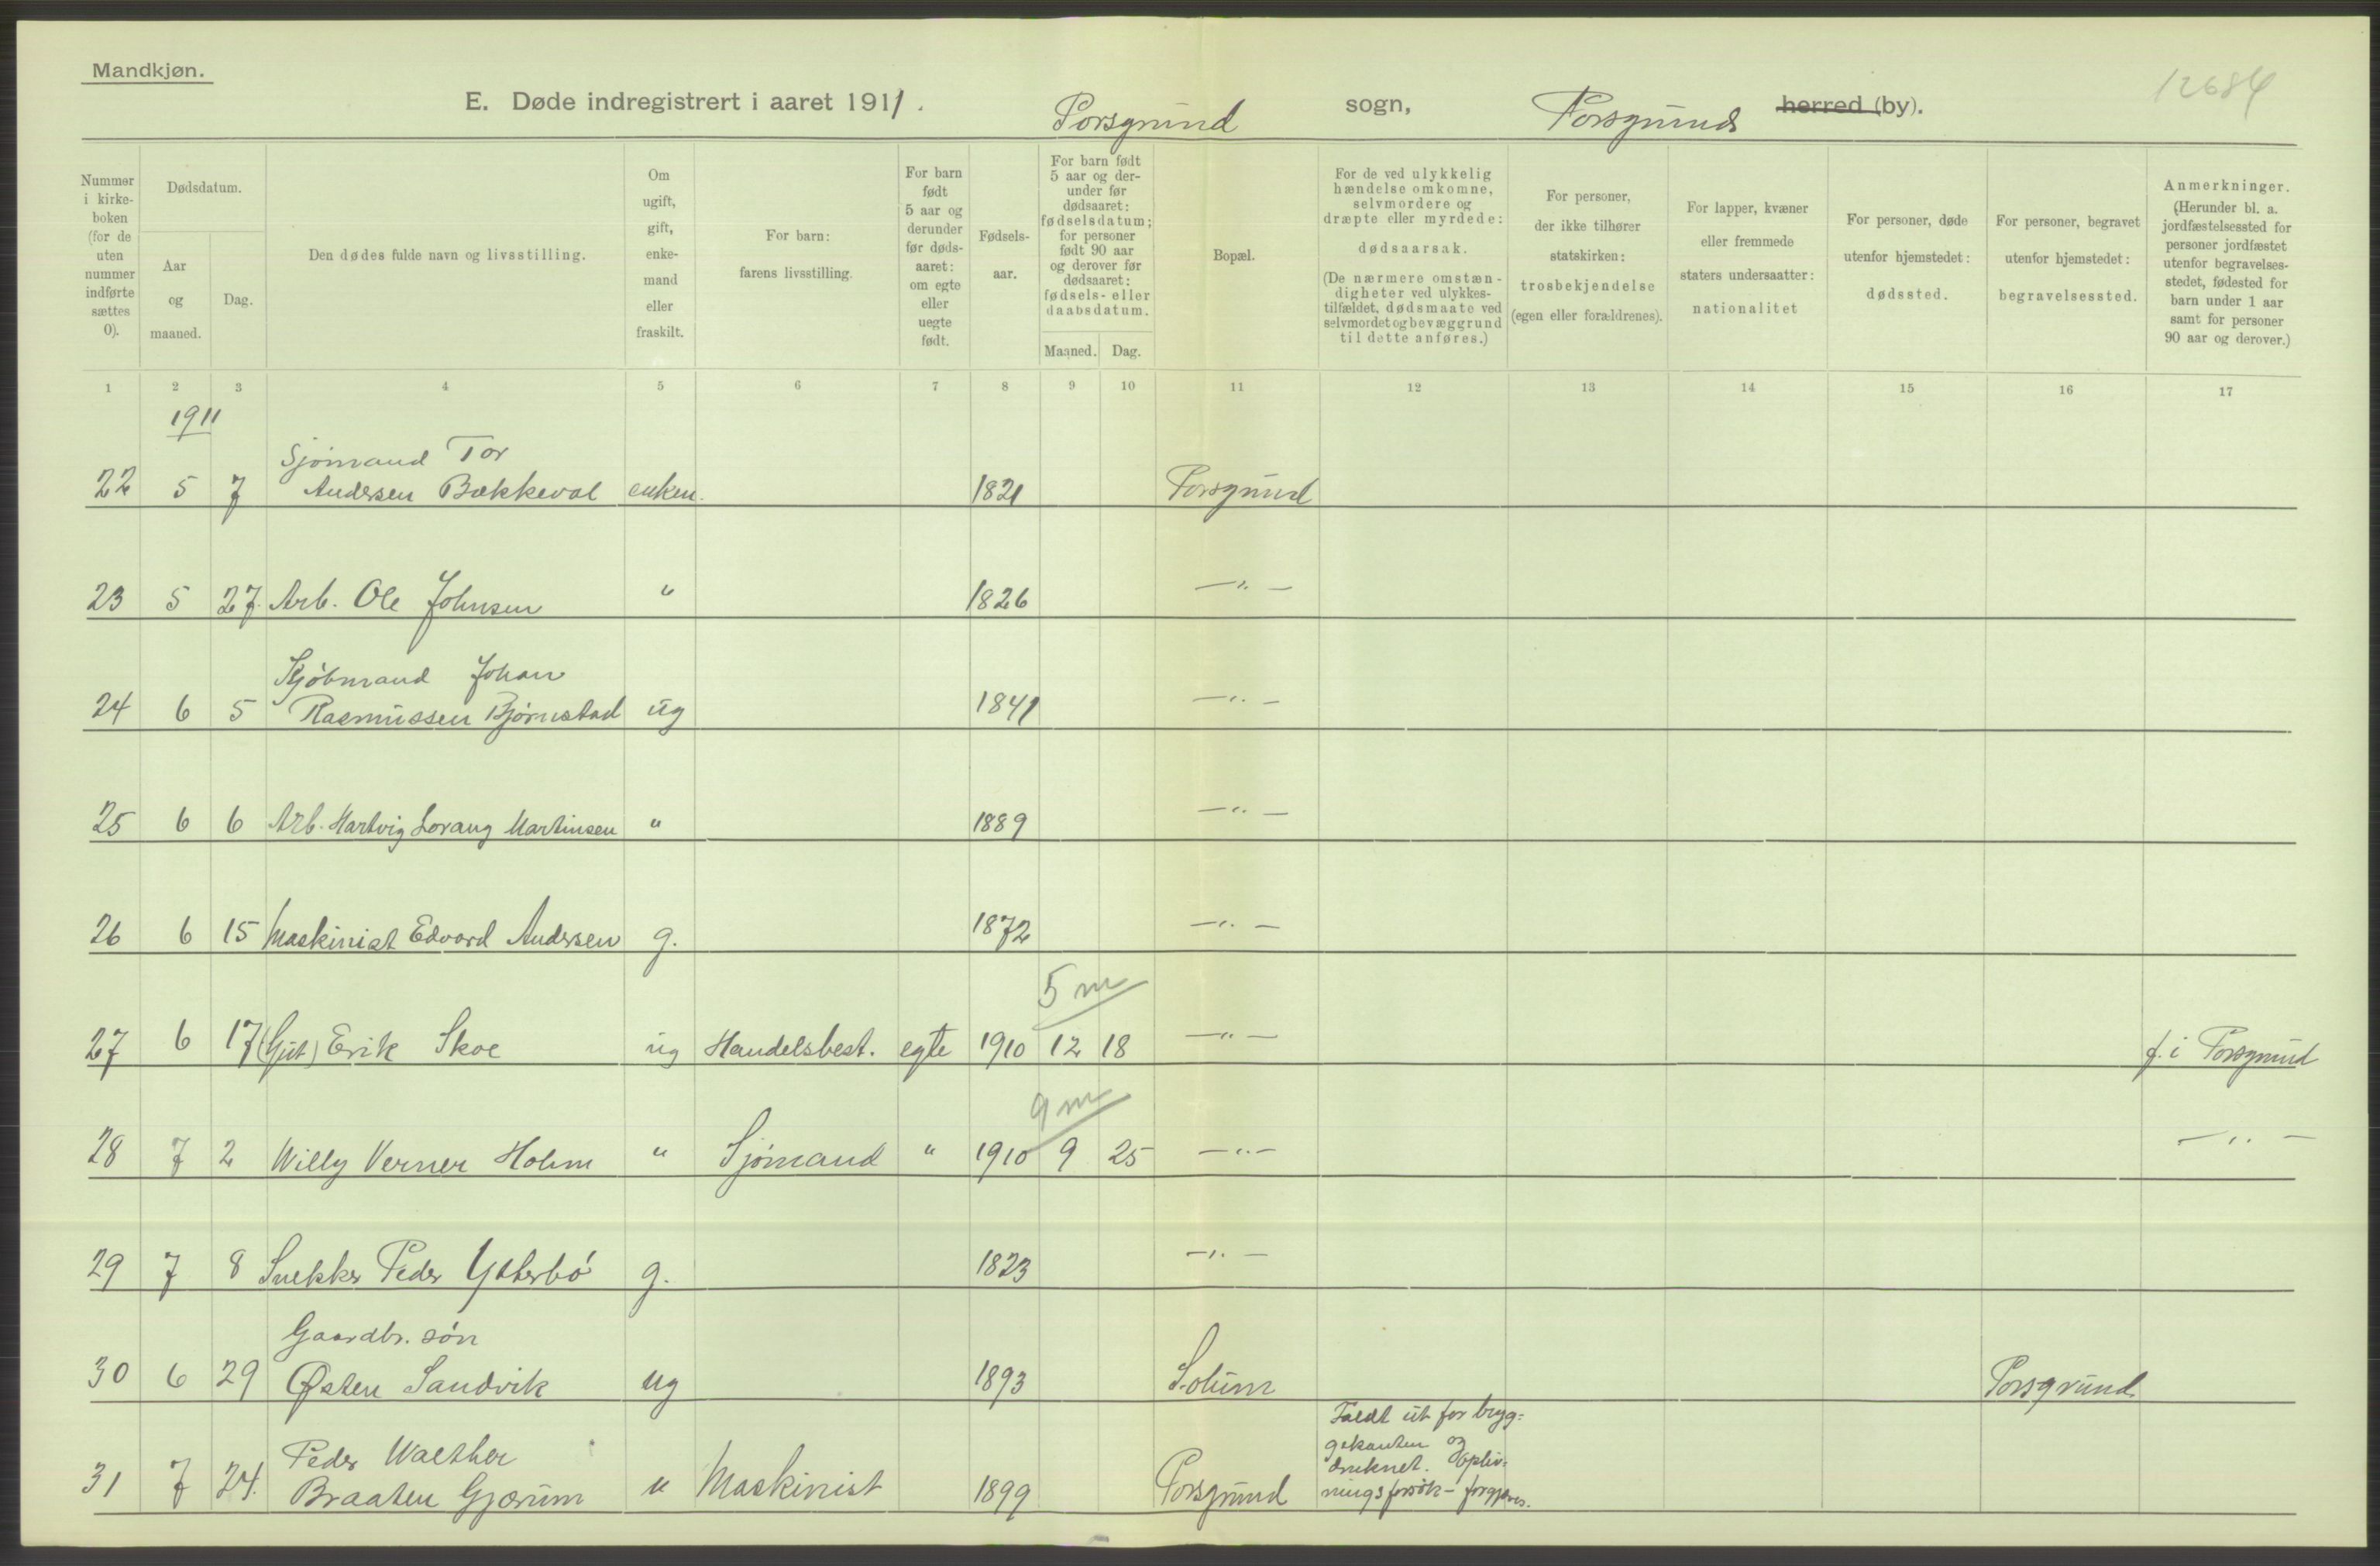 Mandkjøn.
12684
E. Døde indregistrert i aaret 1911. Porsgrund sogn, Porsgrunds herred (by).
Nummer i kirke- boken (for de uten nummer indførte sættes 0).
Dødsdatum.
Aar og maaned.
Dag.
Den dødes fulde navn og livsstilling.
Om ugift, gift, enke- mand eller fraskilt.
For barn: farens livsstilling.
For barn født 5 aar og derunder før døds- aaret: om egte eller uegte født.
Fødsels- aar.
For barn født 5 aar og der- under før dødsaaret: fødselsdatum; for personer født 90 aar og derover før dødsaaret: fødsels- eller daabsdatum.
Maaned. Dag.
Bopæl.
For de ved ulykkelig hændelse omkomne, selvmordere og dræpte eller myrdede: dødsaarsak. (De nærmere omstæn- digheter ved ulykkes- tilfældet, dødsmaate ved selvmordet og bevæggrund til dette anføres.)
For personer, der ikke tilhører statskirken: trosbekjendelse (egen eller forældrenes).
For lapper, kvæner eller fremmede staters undersaatter: nationalitet
For personer, døde utenfor hjemstedet: dødssted.
For personer, begravet utenfor hjemstedet: begravelsessted.
Anmerkninger. (Herunder bl. a. jordfæstelsessted for personer jordfæstet utenfor begravelses- stedet, fødested for barn under 1 aar samt for personer 90 aar og derover.)
1 2 3 4 5 6 7 8 9 10 11 12 13 14 15 16 17
1911
Sjømand Tor
22 5 7 Andersen Bækkeval enkem. 1821 Porsgrund
23 5 27. Arb. Ole Johnsen " 1826 —"—
Kjøbmand Johan
24 6 5 Rasmussen Bjørnstad ug 1841 —"—
25 6 6 Arb. Hartvig Lorang Martinsen " 1889 —"—
26 6 15 Maskinist Edvard Andersen g. 1872 —"—
5 m
27 6 17 (Gut) Erik Skoe ug Handelsbest. egte 1910 12 18 —"— f. i Porsgrund
9 m
28 7 2 Willy Verner Holm " Sjømand " 1910 9 25 —"— —"—
29 7 8 Snekker Peder Ytterbø g. 1823 —"—
Gaardbr. søn
30 6 29 Østen Sandvik ug 1893 Solum Porsgrund
Faldt ut for bryg=
gekanten og
Peder Walther druknet. Opliv=
31 7 24. Braaten Gjærum " Maskinist 1899 Porsgrund ningsforsøk - forgjæves.